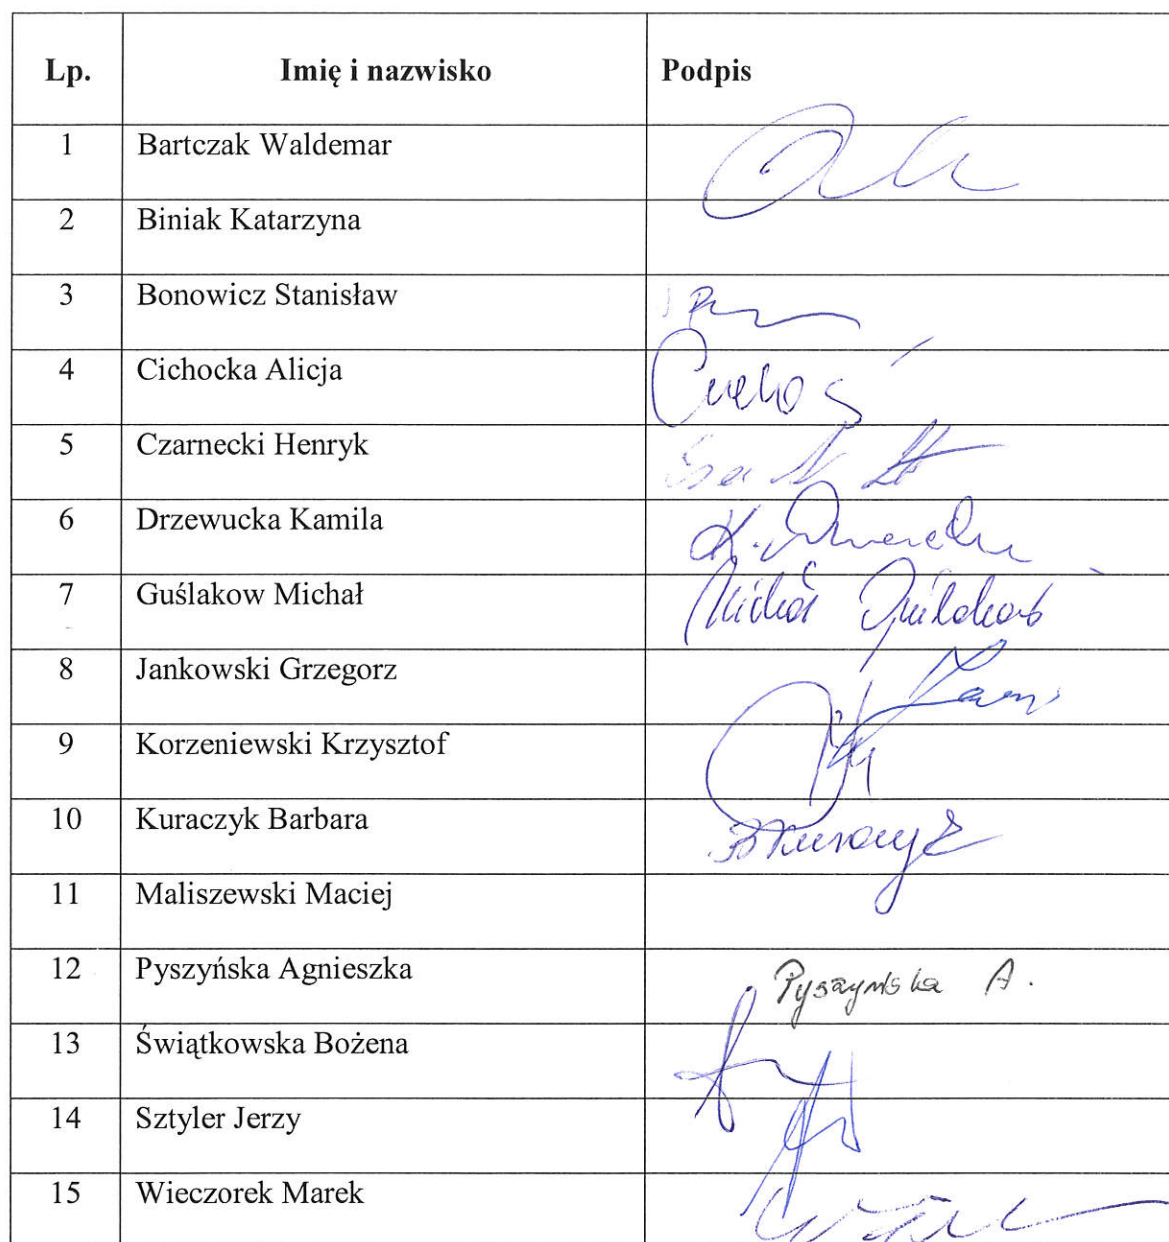 Lp. Imię i nazwisko Podpis
1 Bartczak Waldemar
2 Biniak Katarzyna
3 Bonowicz Stanisław
4 Cichocka Alicja
5 Czarnecki Henryk
6 Drzewucka Kamila
7 Guślakow Michał
8 Jankowski Grzegorz
9 Korzeniewski Krzysztof
10 Kuraczyk Barbara
11 Maliszewski Maciej
12 Pyszyńska Agnieszka Pyszyńska A.
13 Świątkowska Bożena
14 Sztyler Jerzy
15 Wieczorek Marek